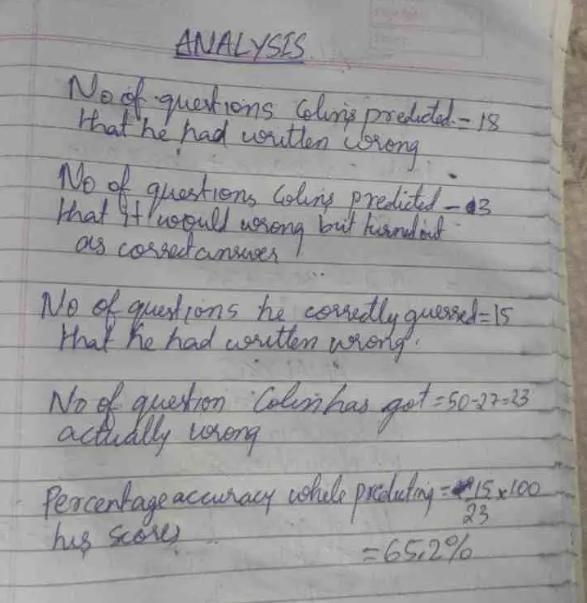 ANALYSIS
No of questions Colins predicted = 18
that he had written wrong
No of questions Colins predicted - 3
that it would wrong but turned out
as correct answer
No of questions he correctly guessed = 15
that he had written wrong.
No of question Colin has got = 50-27=23
actually wrong
Percentage accuracy while predicting = 15 x 100
23
his scores
= 65.2%